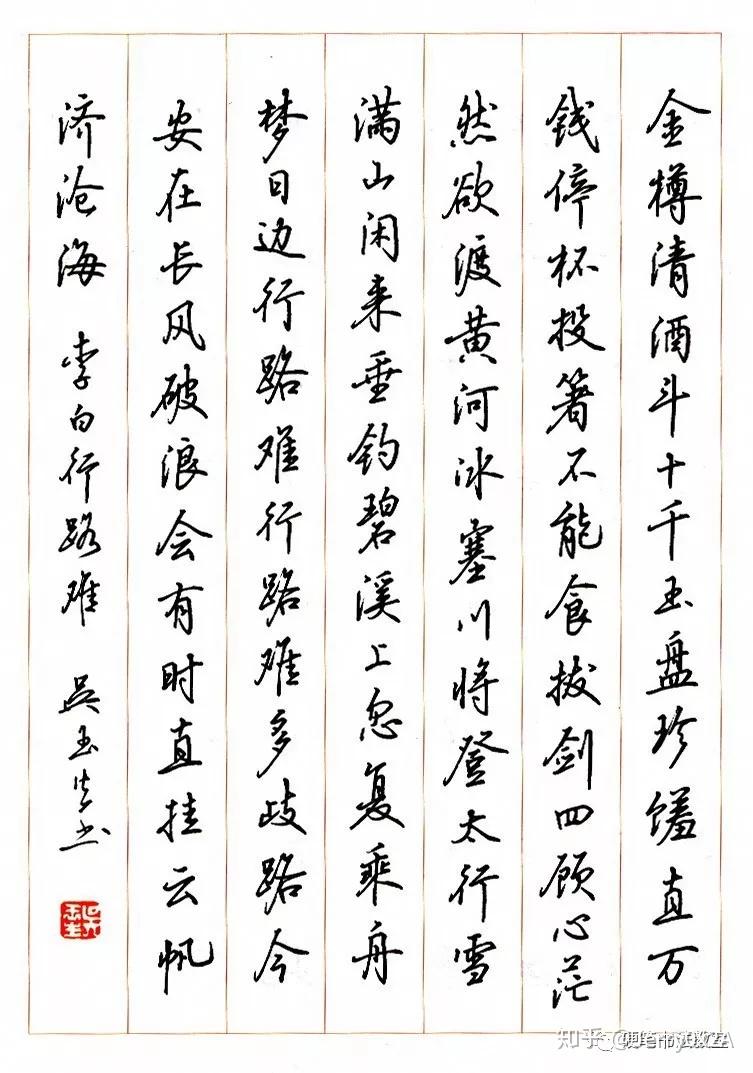 金樽清酒斗十千玉盘珍馐直万
钱停杯投箸不能食拔剑四顾心茫
然欲渡黄河冰塞川将登太行雪
满山闲来垂钓碧溪上忽复乘舟
梦日边行路难行路难多歧路今
安在长风破浪会有时直挂云帆
济沧海 李白行路难 吴玉生书
知乎